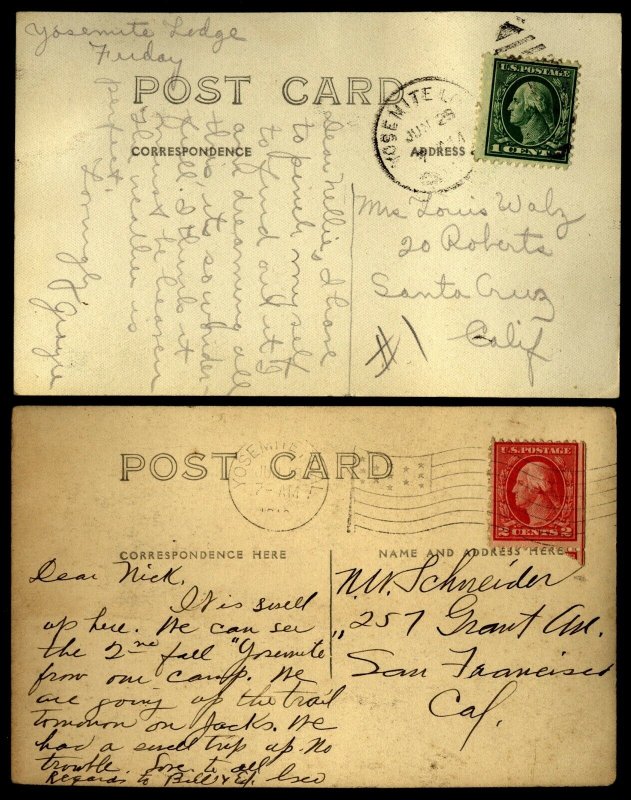 Yosemite Lodge
Friday
POST CARD
CORRESPONDENCE
ADDRESS
YOSEMITE L
JUN 28
AM
U.S. POSTAGE
1 CENT 1
Dear Nellie, I have
to pinch myself
to find out if
and dreaming all
this, it's so wonder-
full. I think it
must be heaven
The weather is
perfect.
Lovingly
Mrs Louis Walz
20 Roberts
Santa Cruz
Calif
#1
POST CARD
YOSEMITE
7-AM
U.S. POSTAGE
2 CENTS 2
CORRESPONDENCE HERE
NAME AND ADDRESS HERE
Dear Nick.
It is swell
up here. We can see
the 2nd fall "Yosemite"
from our camp. We
are going up the trail
tomorrow on Jacks. We
had a swell trip up. No
trouble. Love to all
Regards to Bill & Ed.
N.W. Schneider
257 Grant Av.
San Francisco
Cal.